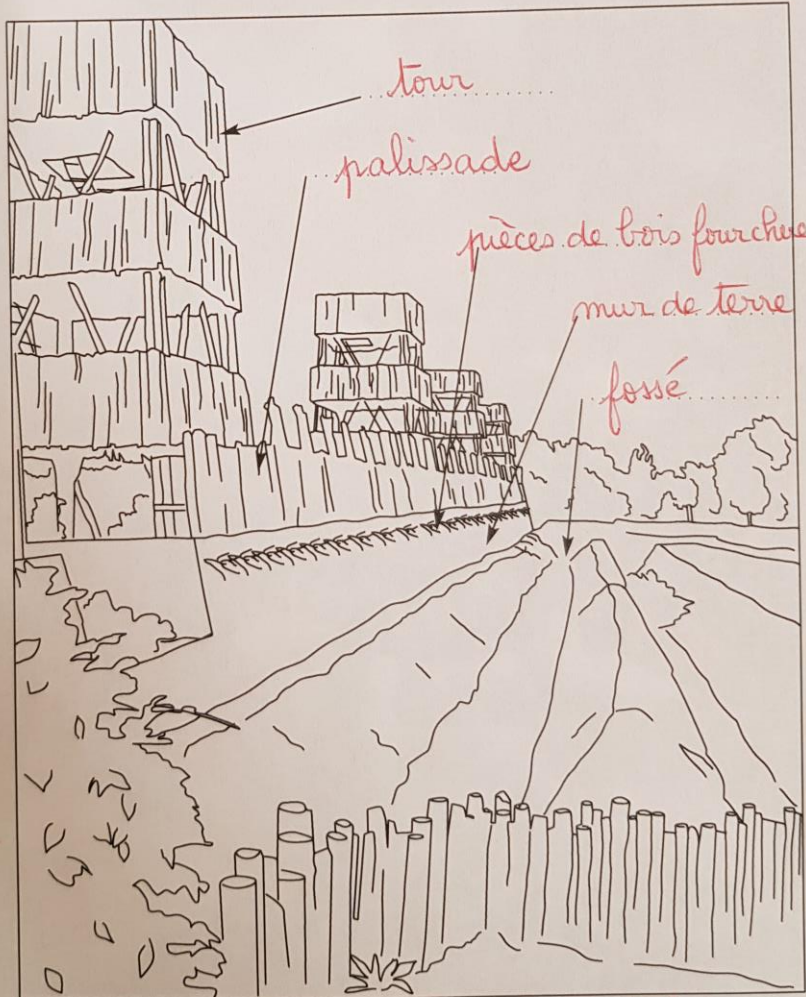 tour
palissade
pièces de bois fourchue
mur de terre
fossé